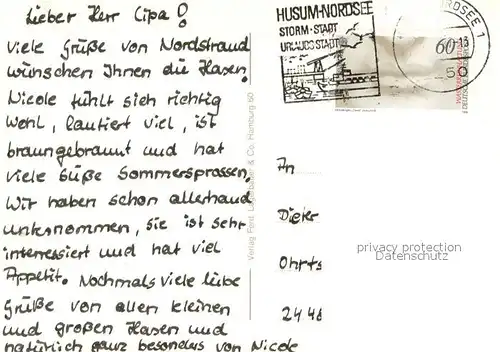 Lieber Herr Cipa!
Viele Grüße von Nordstrand
wünschen Ihnen die Hasen.
Nicole fühlt sich richtig
wohl, lautiert viel, ist
braungebrannt und hat
viele süße Sommersprossen.
Wir haben schon allerhand
unternommen, sie ist sehr
interessiert und hat viel
Appetit. Nochmals viele liebe
Grüße von allen kleinen
und großen Hasen und
natürlich ganz besonders von Nicole
HUSUM-NORDSEE
STORM-STADT
URLAUBSSTADT
RDSEE 1
60
5
An
Dieter
Ohrts
2448
privacy protection
Datenschutz
Verlag Ferd. & Co., Hamburg 50